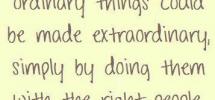 ordinary things could
be made extraordinary,
simply by doing them
with the right people